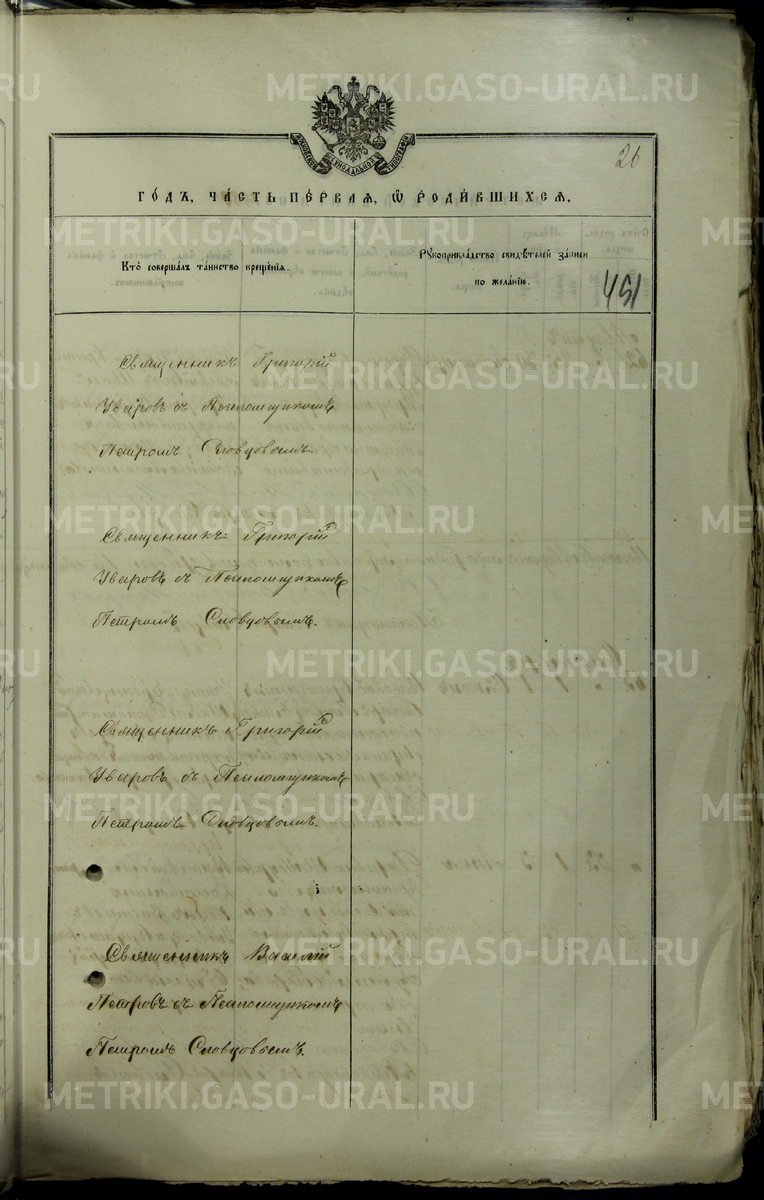 METRIKI.GASO-URAL.RU
26
СѴНОДАЛЬНОЙ ТИПОГРАФІИ
ГО́ДЪ, ЧА́СТЬ ПЕ́РВАѦ, Ѡ҆ РОДИ́ВШИХСѦ.
Кто̀ совершáлъ тáинство крещéнїѧ.
Рꙋкоприклáдство свидѣ́телей зáписи
по желáнїю.
451
Священникъ Григорій
Уваровъ съ Псаломщикомъ
Петромъ Словцовымъ.
Священникъ Григорій
Уваровъ съ Псаломщикомъ
Петромъ Словцовымъ.
Священникъ Григорій
Уваровъ съ Псаломщикомъ
Петромъ Словцовымъ.
Священникъ Василій
Петровъ съ Псаломщикомъ
Петромъ Словцовымъ.